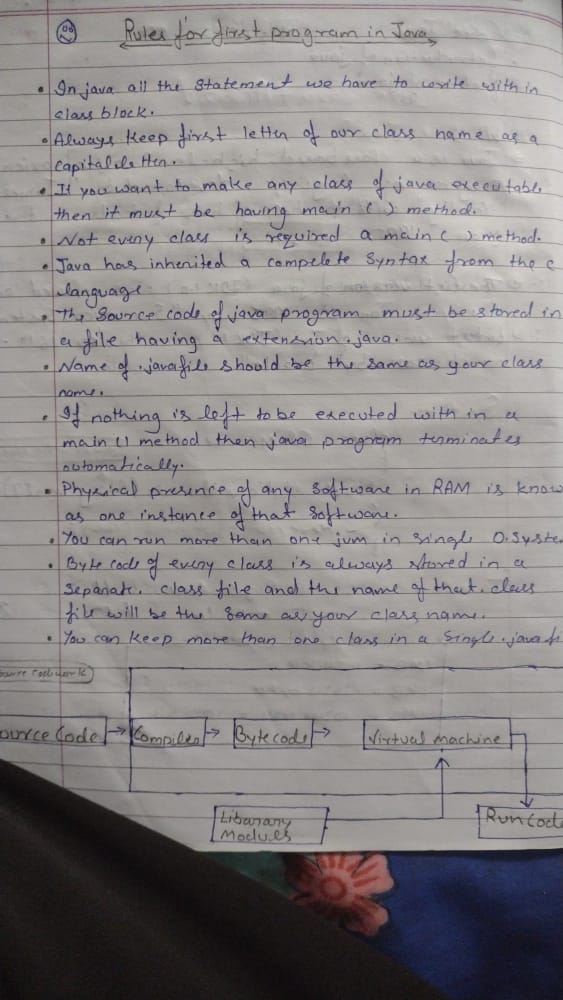 Rules for first program in Java
• In java all the statement we have to write with in
class block.
• Always keep first letter of our class name as a
capital letter.
• If you want to make any class of java executable
then it must be having main ( ) method.
• Not every class is required a main ( ) method.
• Java has inherited a compelete syntax from the c
language
• The source code of java program must be stored in
a file having a extension .java.
• Name of .java file should be the same as your class
name.
• If nothing is left to be executed with in a
main () method then java program terminates
automatically.
• Physical presence of any software in RAM is know
as one instance of that software.
• You can run more than one jvm in single O.Syste
• Byte code of every class is always stored in a
separate. class file and the name of that .class
file will be the same as your class name.
• You can keep more than one class in a single .java fi
ource Code work
ource Code → Compiler → Bytecode → Virtual machine
Libarary
Modules
Run Cod